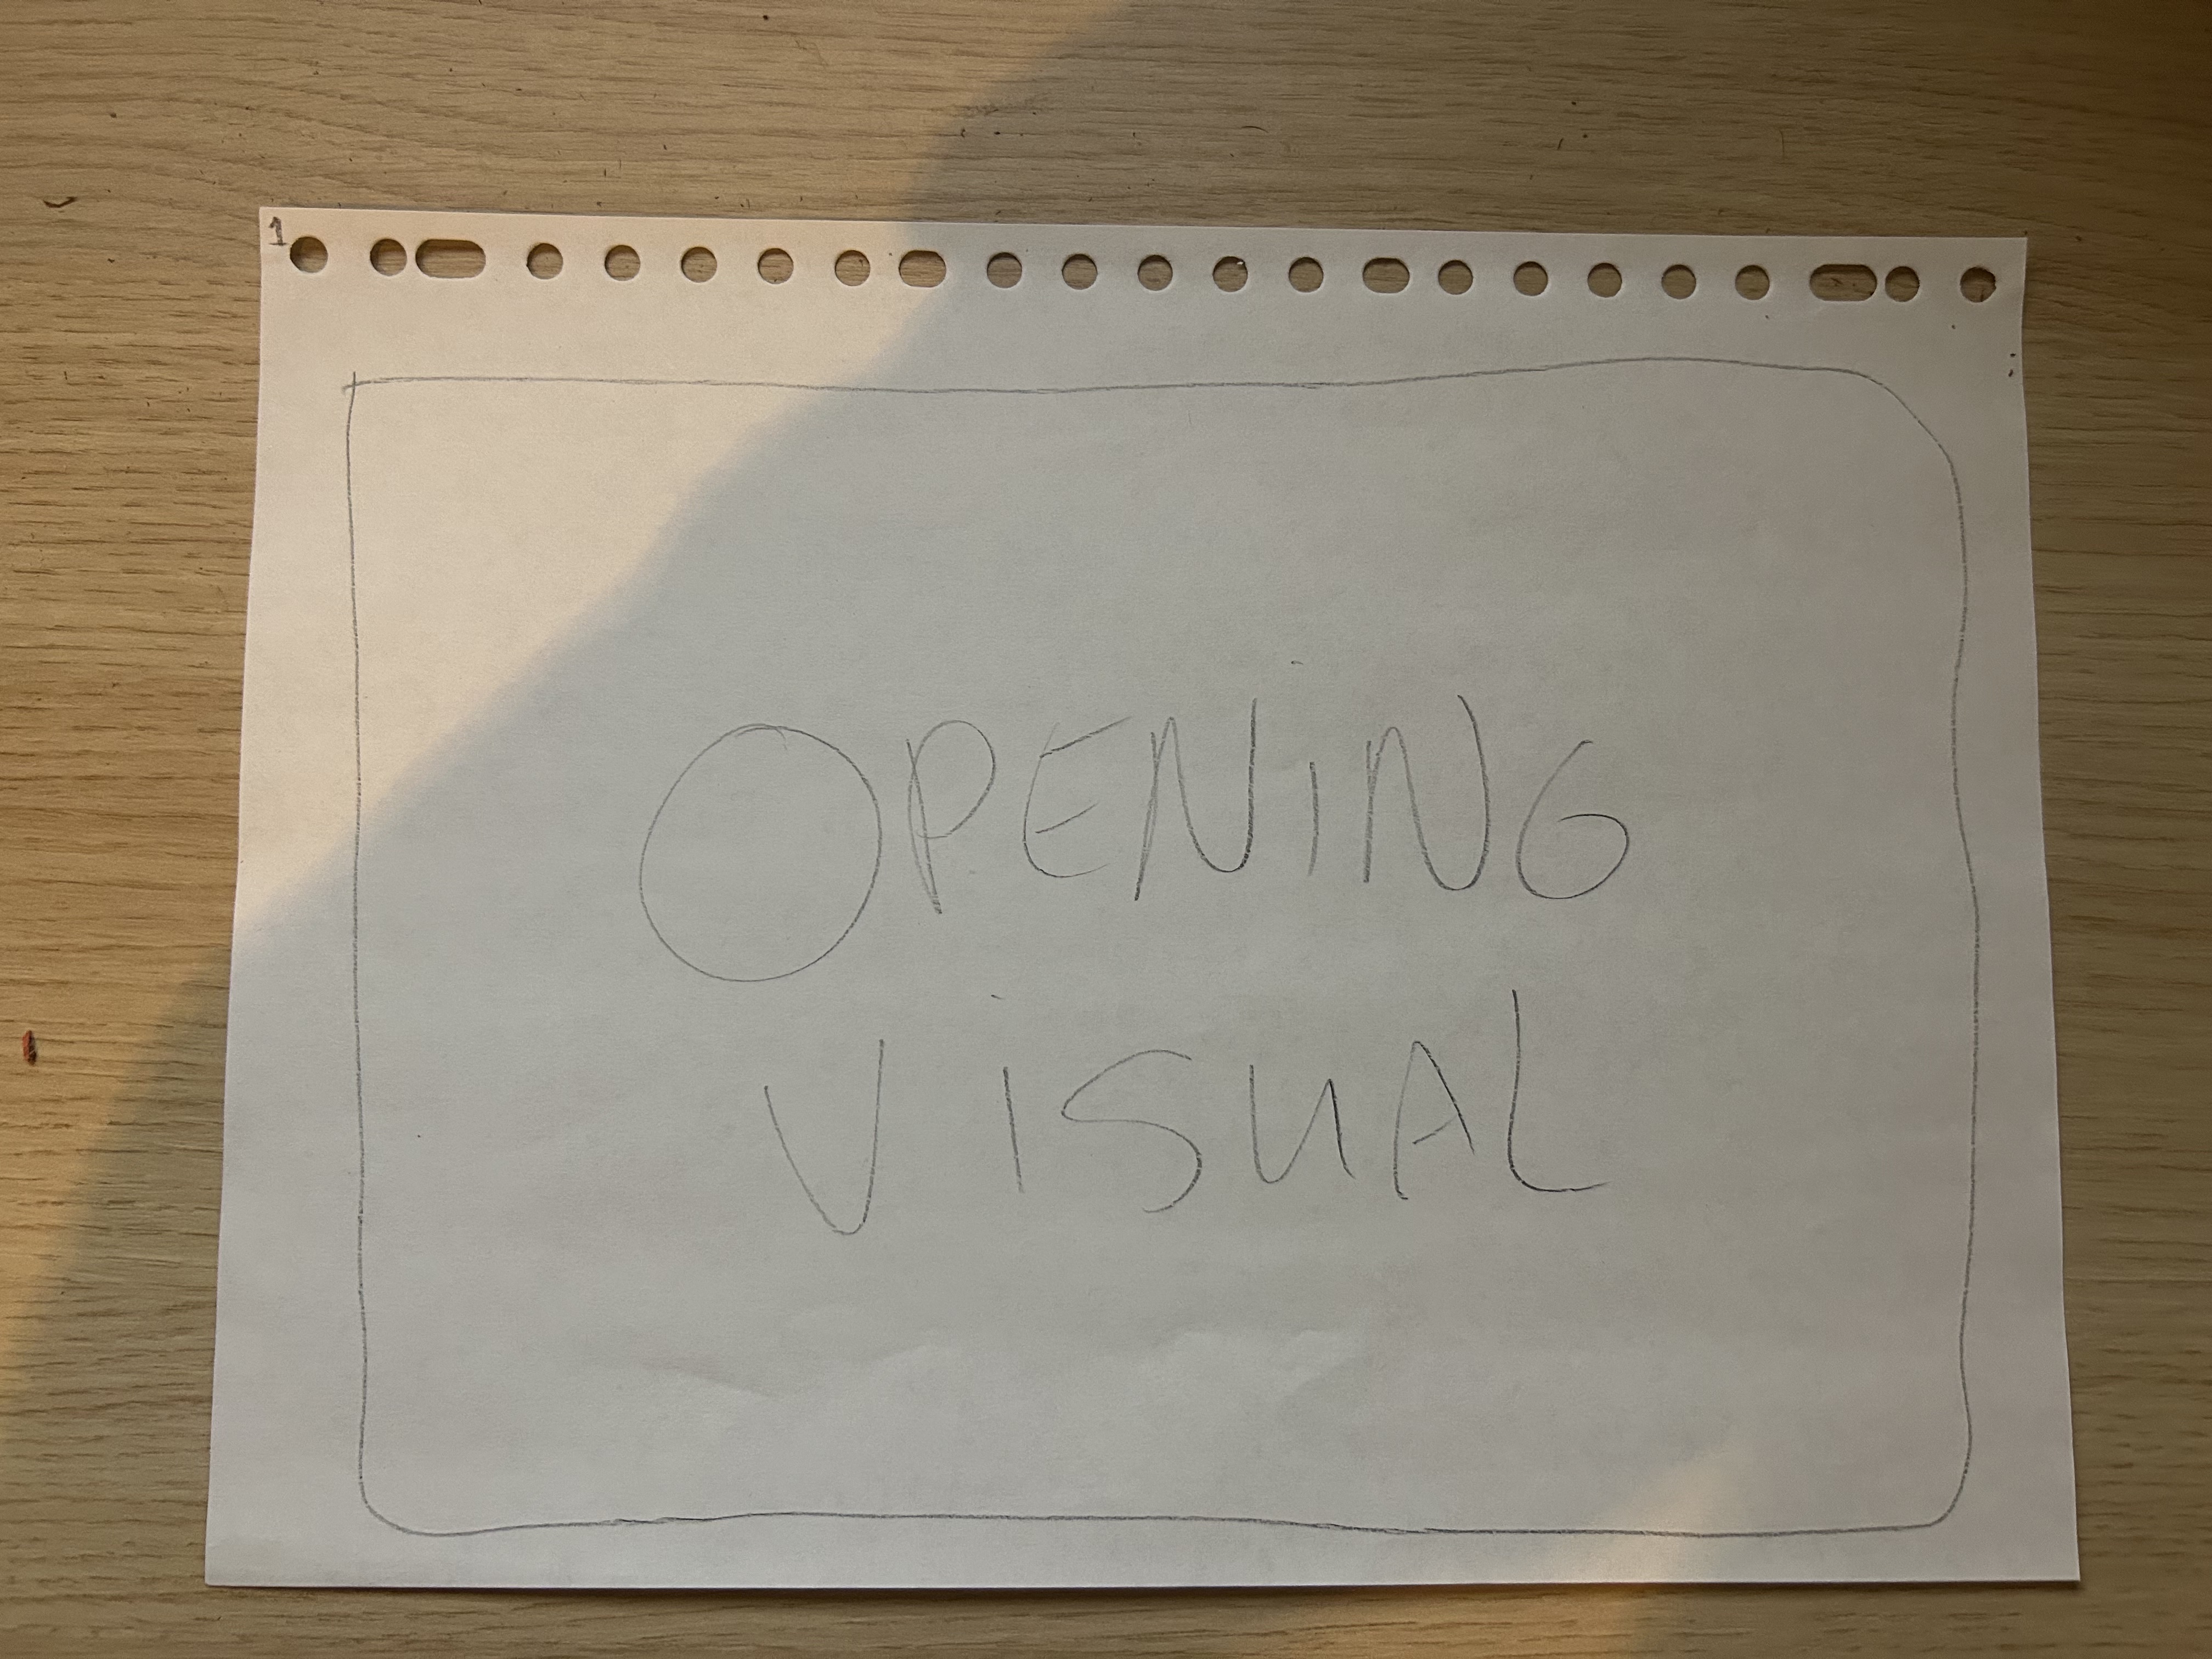 1
OPENiNG
ViSUAL